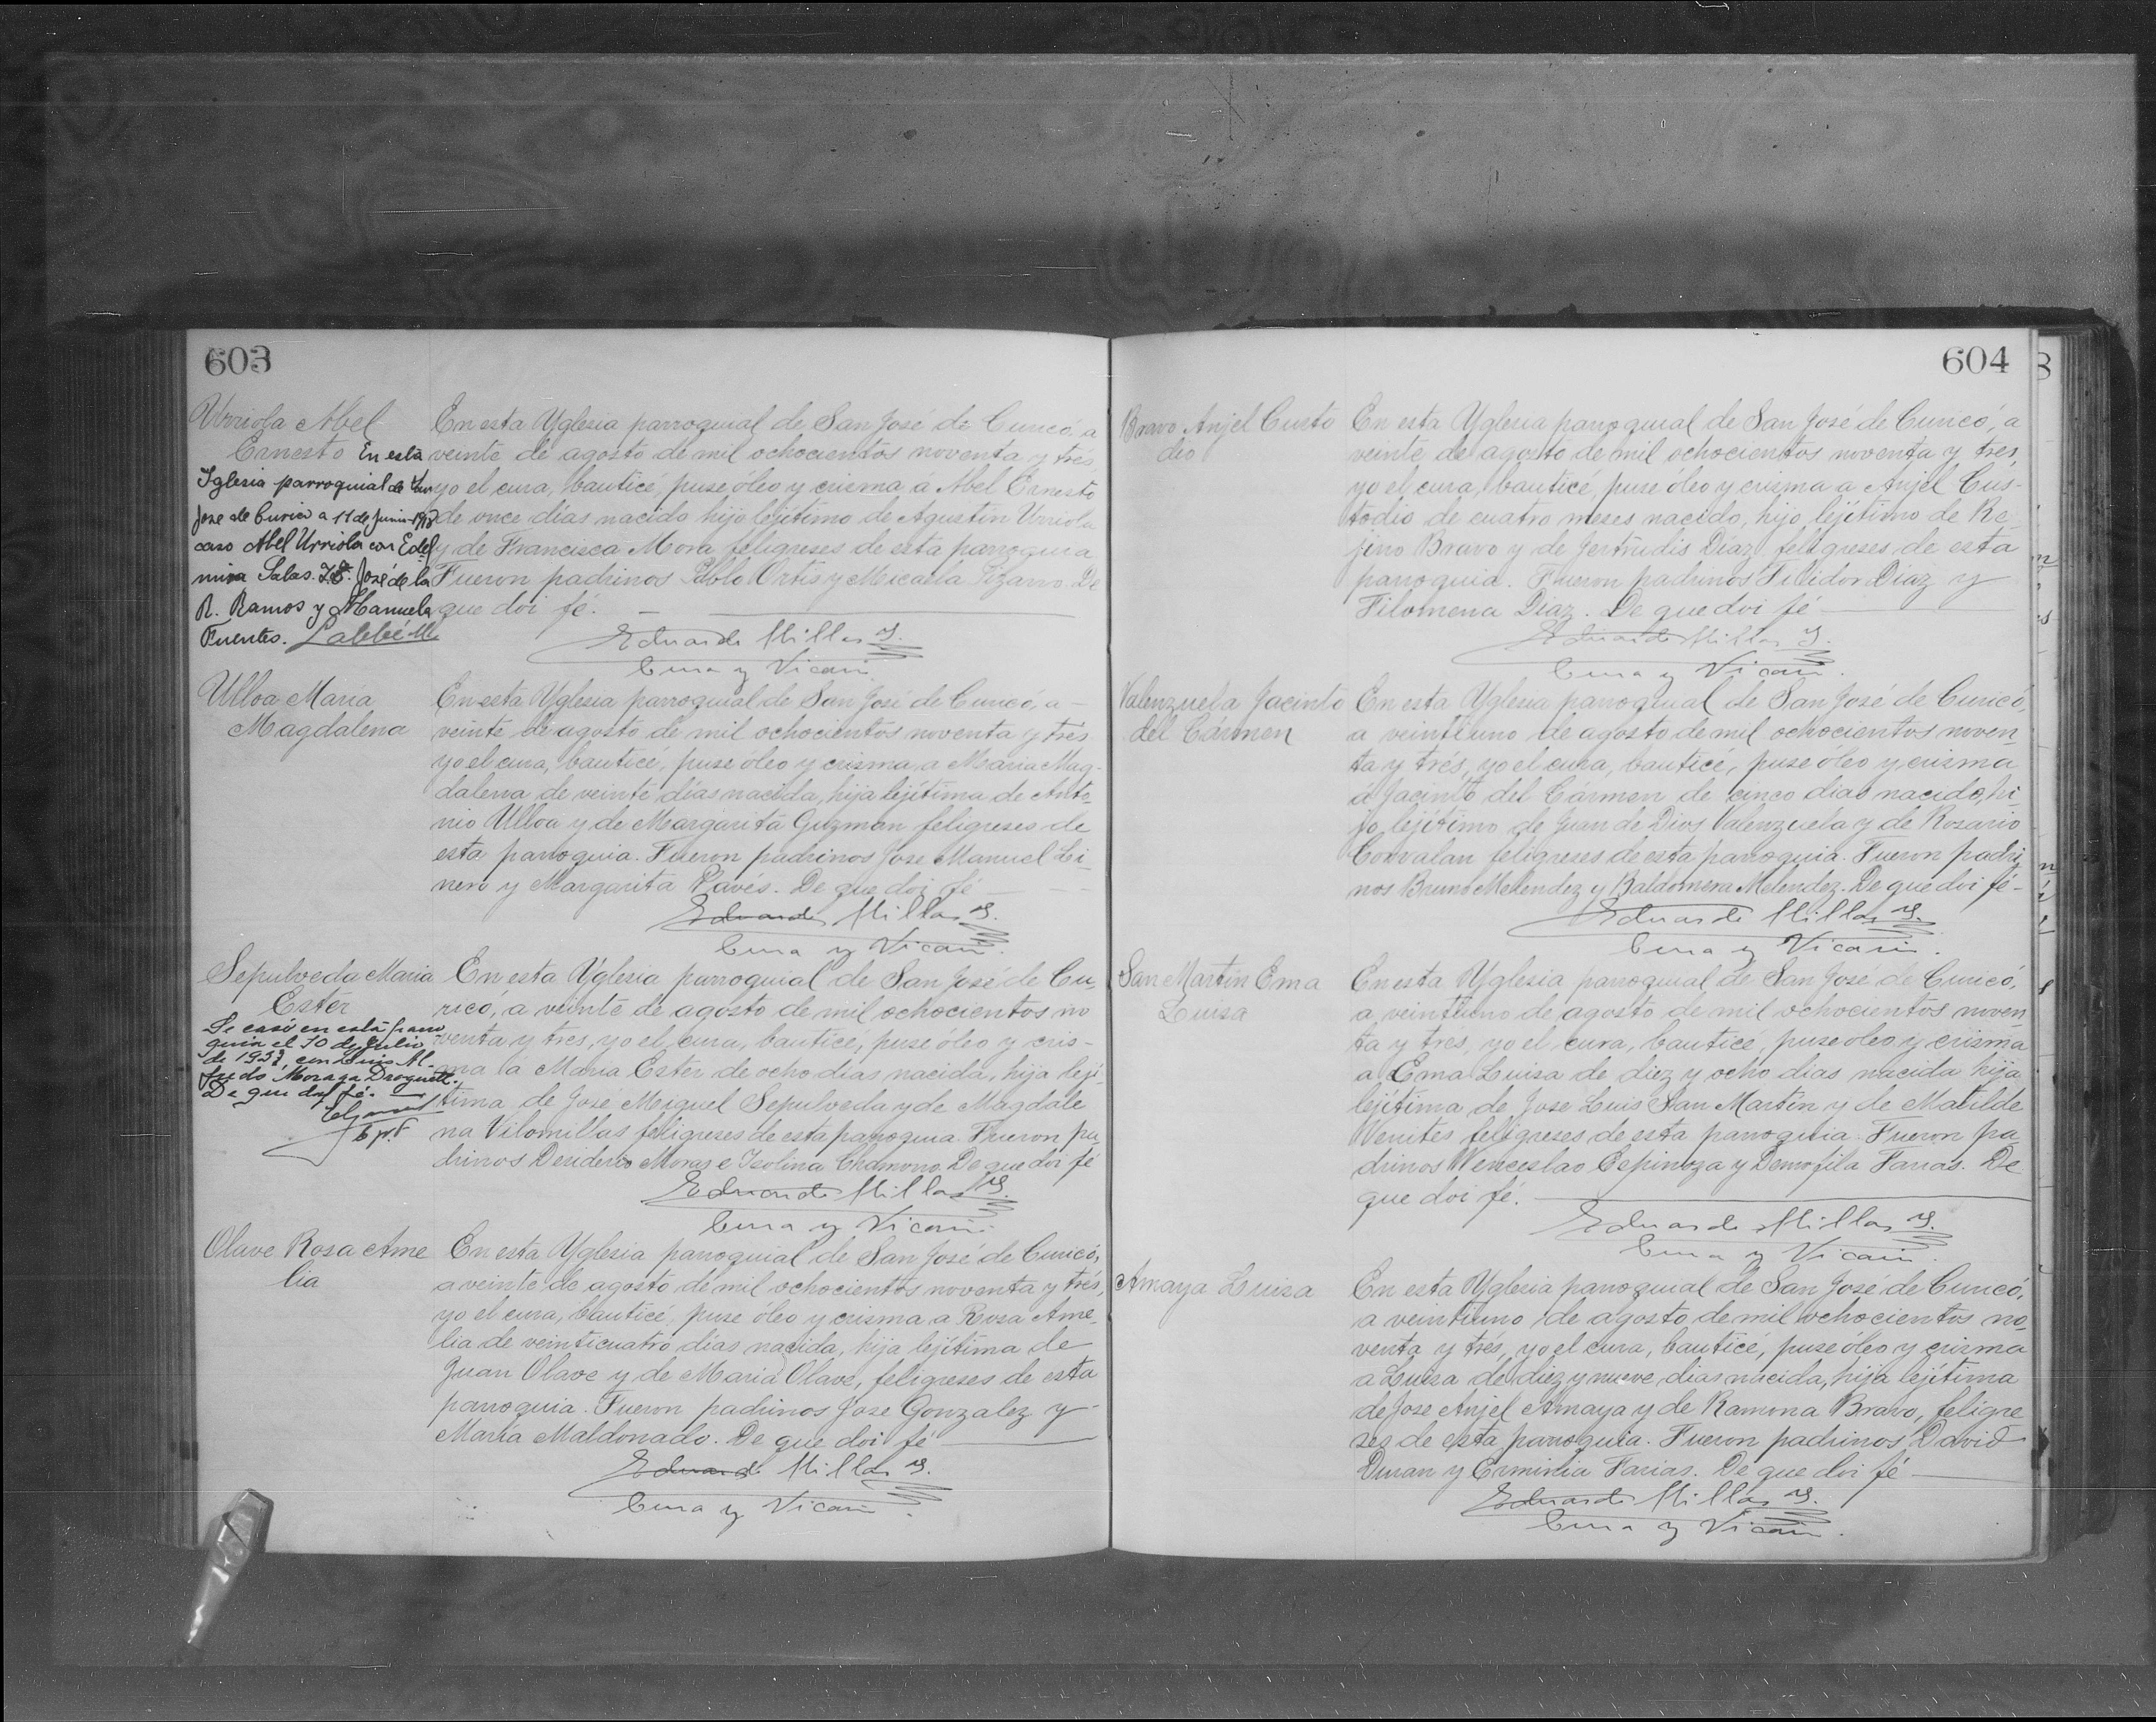 603
Urriola Abel
Ernesto
En esta
Iglesia parroquial de San
José de Curicó a 11 de junio 1918
caso Abel Urriola con Edel
mira Salas. Ts. José de la
R. Ramos y Manuela
Fuentes. Labbé
En esta Yglesia parroquial de San José de Curicó, a
veinte de agosto de mil ochocientos noventa y trés,
yo el cura, bauticé, puse óleo y crisma a Abel Ernesto
de once días nacido hijo lejítimo de Agustin Urriola
y de Francisca Mora feligreses de esta parroquia
Fueron padrinos Pablo Ortis y Micaela Pizarro. De
que doi fé.
Eduardo Millas Y.
Cura y Vicario
Ulloa María
Magdalena
En esta Yglesia parroquial de San José de Curicó, a
veinte de agosto de mil ochocientos noventa y trés
yo el cura, bauticé, puse óleo y crisma a María Mag-
dalena de veinte días nacida, hija lejítima de Anto-
nio Ulloa y de Margarita Guzman feligreses de
esta parroquia. Fueron padrinos José Manuel Li-
nero y Margarita Pavés. De que doi fé
Eduardo Millas Y.
Cura y Vicario.
Sepulveda Maria
Ester
Se casó en esta parro
quia el 10 de Julio
de 193 con Luis Al-
fredo Moraga Droguett.
De que doy fé.
En esta Yglesia parroquial de San José de Cu-
ricó, a veinte de agosto de mil ochocientos no
venta y tres, yo el cura, bauticé, puse óleo y cris-
ma a María Ester de ocho días nacida, hija leji-
tima de José Miguel Sepulveda y de Magdale
na Vilomillas feligreses de esta parroquia. Fueron pa-
drinos Desiderio Moras e Isolina De que doi fé
Eduardo Millas Y.
Cura y Vicario.
Olave Rosa Ame
lia
En esta Yglesia parroquial de San José de Curicó,
a veinte de agosto de mil ochocientos noventa y trés,
yo el cura, bauticé, puse óleo y crisma a Rosa Ame-
lia de veinticuatro días nacida, hija lejítima de
Juan Olave y de María Olave, feligreses de esta
parroquia. Fueron padrinos José Gonzalez y
María Maldonado. De que doi fé
Eduardo Millas Y.
Cura y Vicario.
604
Bravo Anjel Custo
dio
En esta Yglesia parroquial de San José de Curicó, a
veinte de agosto de mil ochocientos noventa y tres,
yo el cura, bauticé, puse óleo y crisma a Anjel Cus-
todio de cuatro meses nacido, hijo lejítimo de Re-
jino Bravo y de Jertrudis Díaz feligreses de esta
parroquia. Fueron padrinos Filidor Díaz y
Filomena Díaz. De que doi fé
Eduardo Millas Y.
Cura y Vicario.
Valenzuela Jacinto
del Cármen
En esta Yglesia parroquial de San José de Curicó,
a veintiuno de agosto de mil ochocientos noven-
ta y trés, yo el cura, bauticé, puse óleo y crisma
a Jacinto del Cármen de cinco días nacido, hi-
jo lejítimo de Juan de Dios Valenzuela y de Rosario
Corvalan feligreses de esta parroquia. Fueron padri-
nos Bruno Melendez y Baldomera Melendez. De que doi fé-
Eduardo Millas Y.
Cura y Vicario.
San Martin Ema
Luisa
En esta Yglesia parroquial de San José de Curicó,
a veintiuno de agosto de mil ochocientos noven-
ta y trés, yo el cura, bauticé, puse óleo y crisma
a Ema Luisa de diez y ocho días nacida hija
lejítima de José Luis San Martin y de Matilde
Venites feligreses de esta parroquia. Fueron pa-
drinos Wenceslao Espinoza y Demofila Farias. De
que doi fé.
Eduardo Millas Y.
Cura y Vicario.
Amaya Luisa
En esta Yglesia parroquial de San José de Curicó,
a veintiuno de agosto de mil ochocientos no-
venta y trés, yo el cura, bauticé, puse óleo y crisma
a Luisa de diez y nueve días nacida, hija lejítima
de José Anjel Amaya y de Ramona Bravo, feligre
ses de esta parroquia. Fueron padrinos David
Duran y Erminia Farias. De que doi fé
Eduardo Millas Y.
Cura y Vicario.